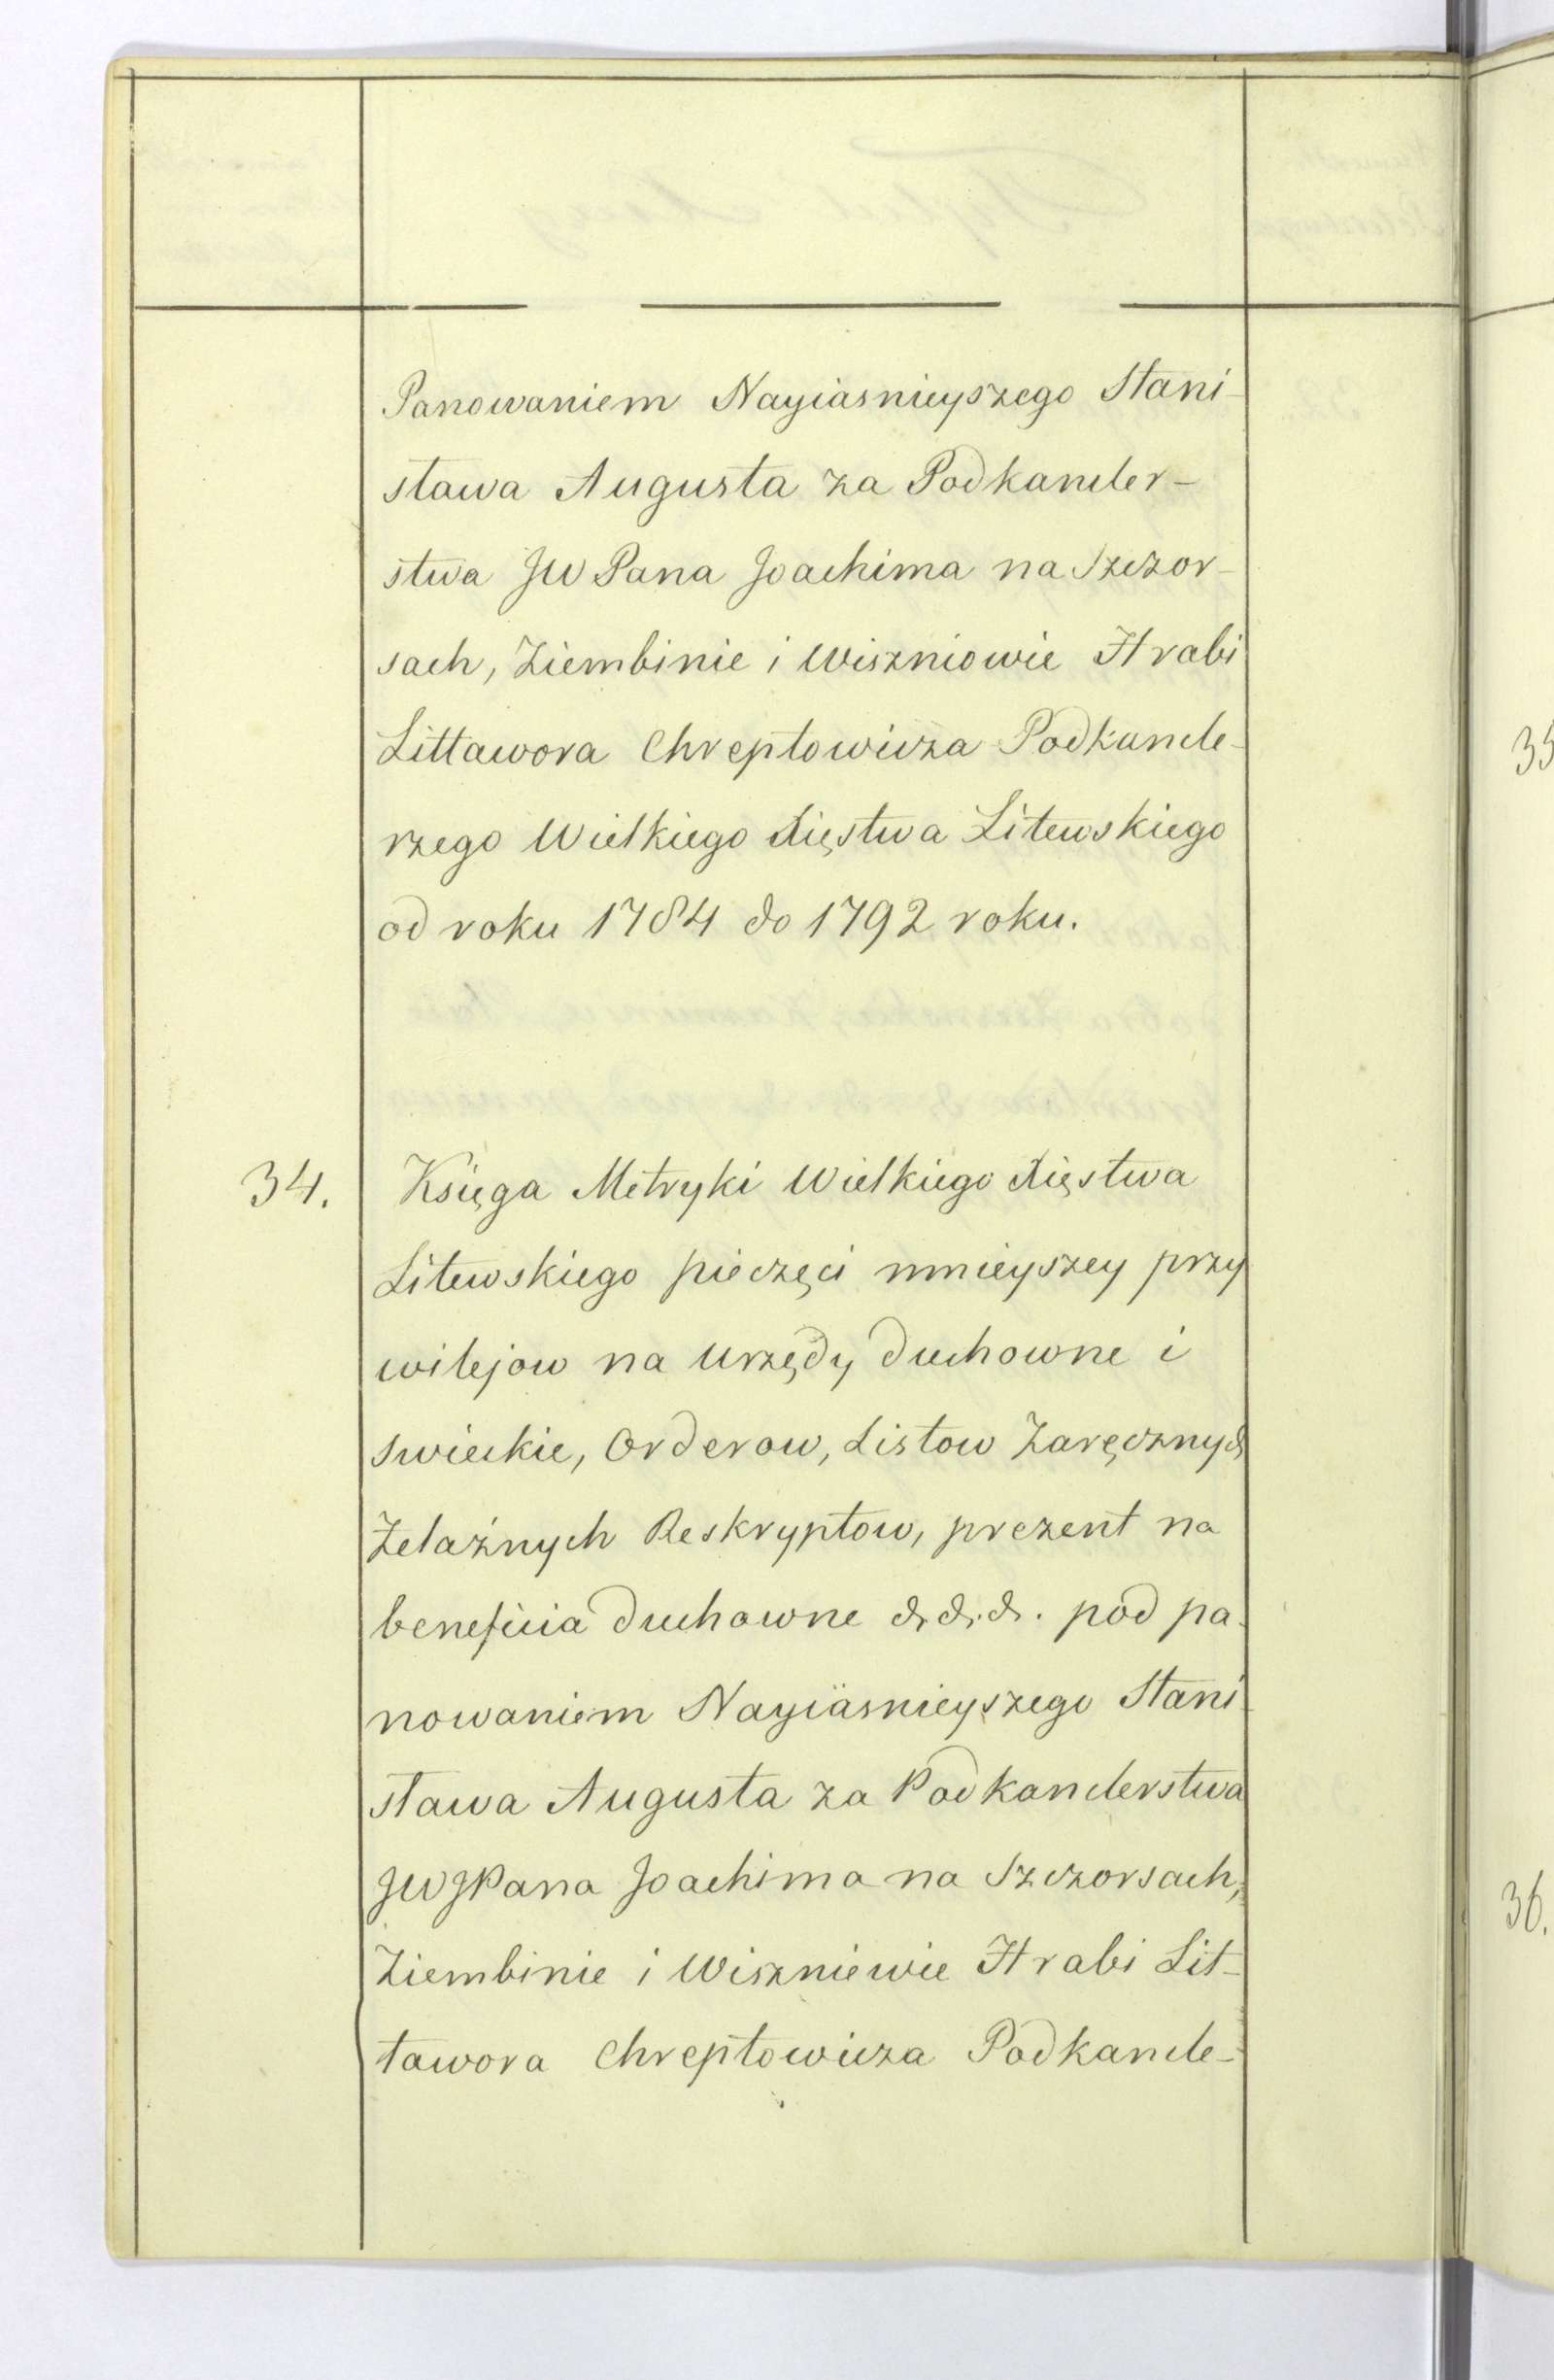 Panowaniem Nayiasnieyszego Stani-
sława Augusta za Podkancler-
stwa JW Pana Joachima na Szczor-
sach, Ziembinie i Wiszniowie Hrabi
Littawora Chreptowicza Podkancle-
rzego Wielkiego Xięstwa Litewskiego
od roku 1784 do 1792 roku.
34. Księga Metryki Wielkiego Xięstwa
Litewskiego pieczęci mnieyszey przy
wilejow na Urzędy duchowne i
swieckie, Orderow, Listow Zaręcznych
Żelaźnych Reskryptow, prezent na
beneficia duchowne &.&.&. pod pa-
nowaniem Nayiäsnieyszego Stani
sława Augusta za Podkanclerstwa
JWJPana Joachima na Szczorsach,
Ziembinie i Wiszniewie Hrabi Lit-
tawora Chreptowicza Podkancle-
35
36.